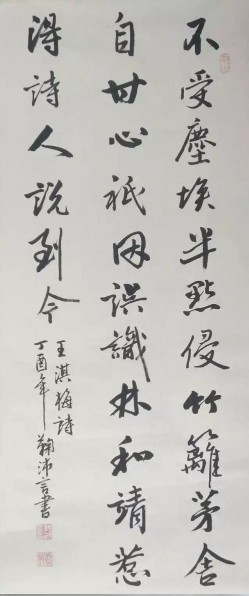 不受塵埃半點侵竹籬茅舍
自甘心祇因誤識林和靖惹
得詩人說到今
王淇梅詩
丁酉年鞠沛言書